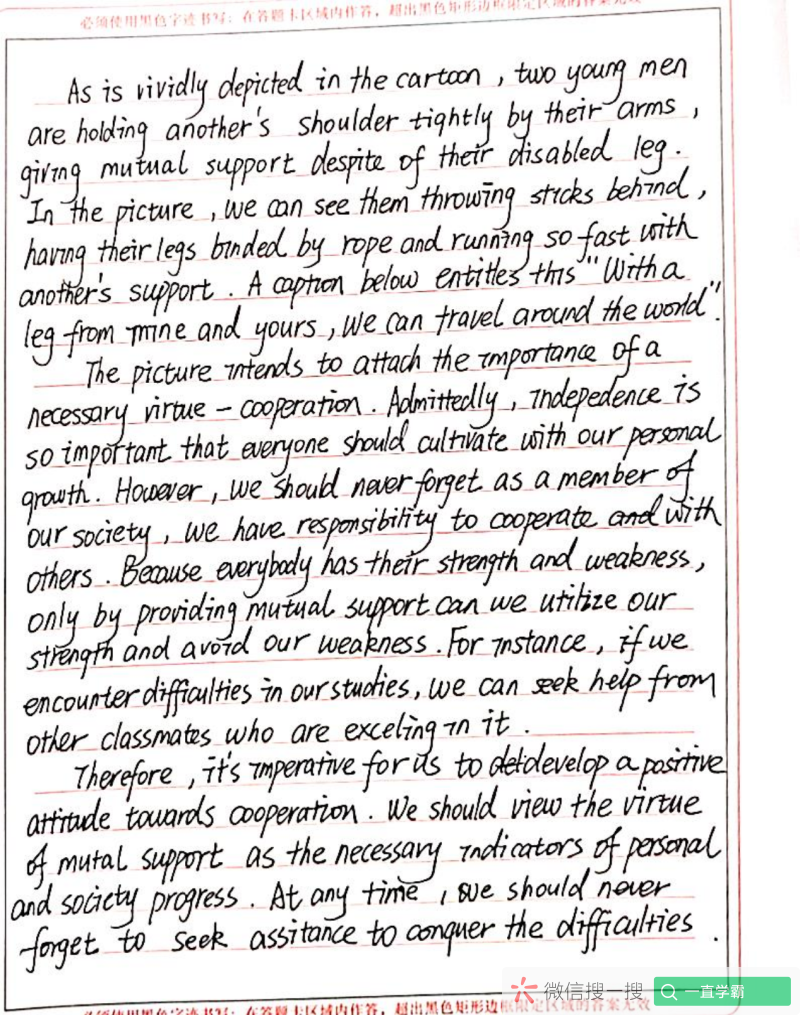 必须使用黑色字迹书写;在答题卡区域内作答,超出黑色矩形边框限定区域的答案无效
As is vividly depicted in the cartoon , two young men
are holding another's shoulder tightly by their arms ,
giving mutual support despite of their disabled leg .
In the picture , we can see them throwing sticks behind ,
having their legs binded by rope and running so fast with
another's support . A caption below entitles this "With a
leg from mine and yours , we can travel around the world".
The picture intends to attach the importance of a
necessary virtue – cooperation . Admittedly , indepedence is
so important that everyone should cultivate with our personal
growth . However , we should never forget as a member of
our society , we have responsibility to cooperate and with
others . Because everybody has their strength and weakness ,
only by providing mutual support can we utilize our
strength and avoid our weakness . For instance , if we
encounter difficulties in our studies , we can seek help from
other classmates who are exceling in it .
Therefore , it's imperative for us to det develop a positive
attitude towards cooperation . We should view the virtue
of mutal support as the necessary indicators of personal
and society progress . At any time , we should never
forget to seek assitance to conquer the difficulties .
微信搜一搜 一直学霸
必须使用黑色字迹书写;在答题卡区域内作答,超出黑色矩形边框限定区域的答案无效